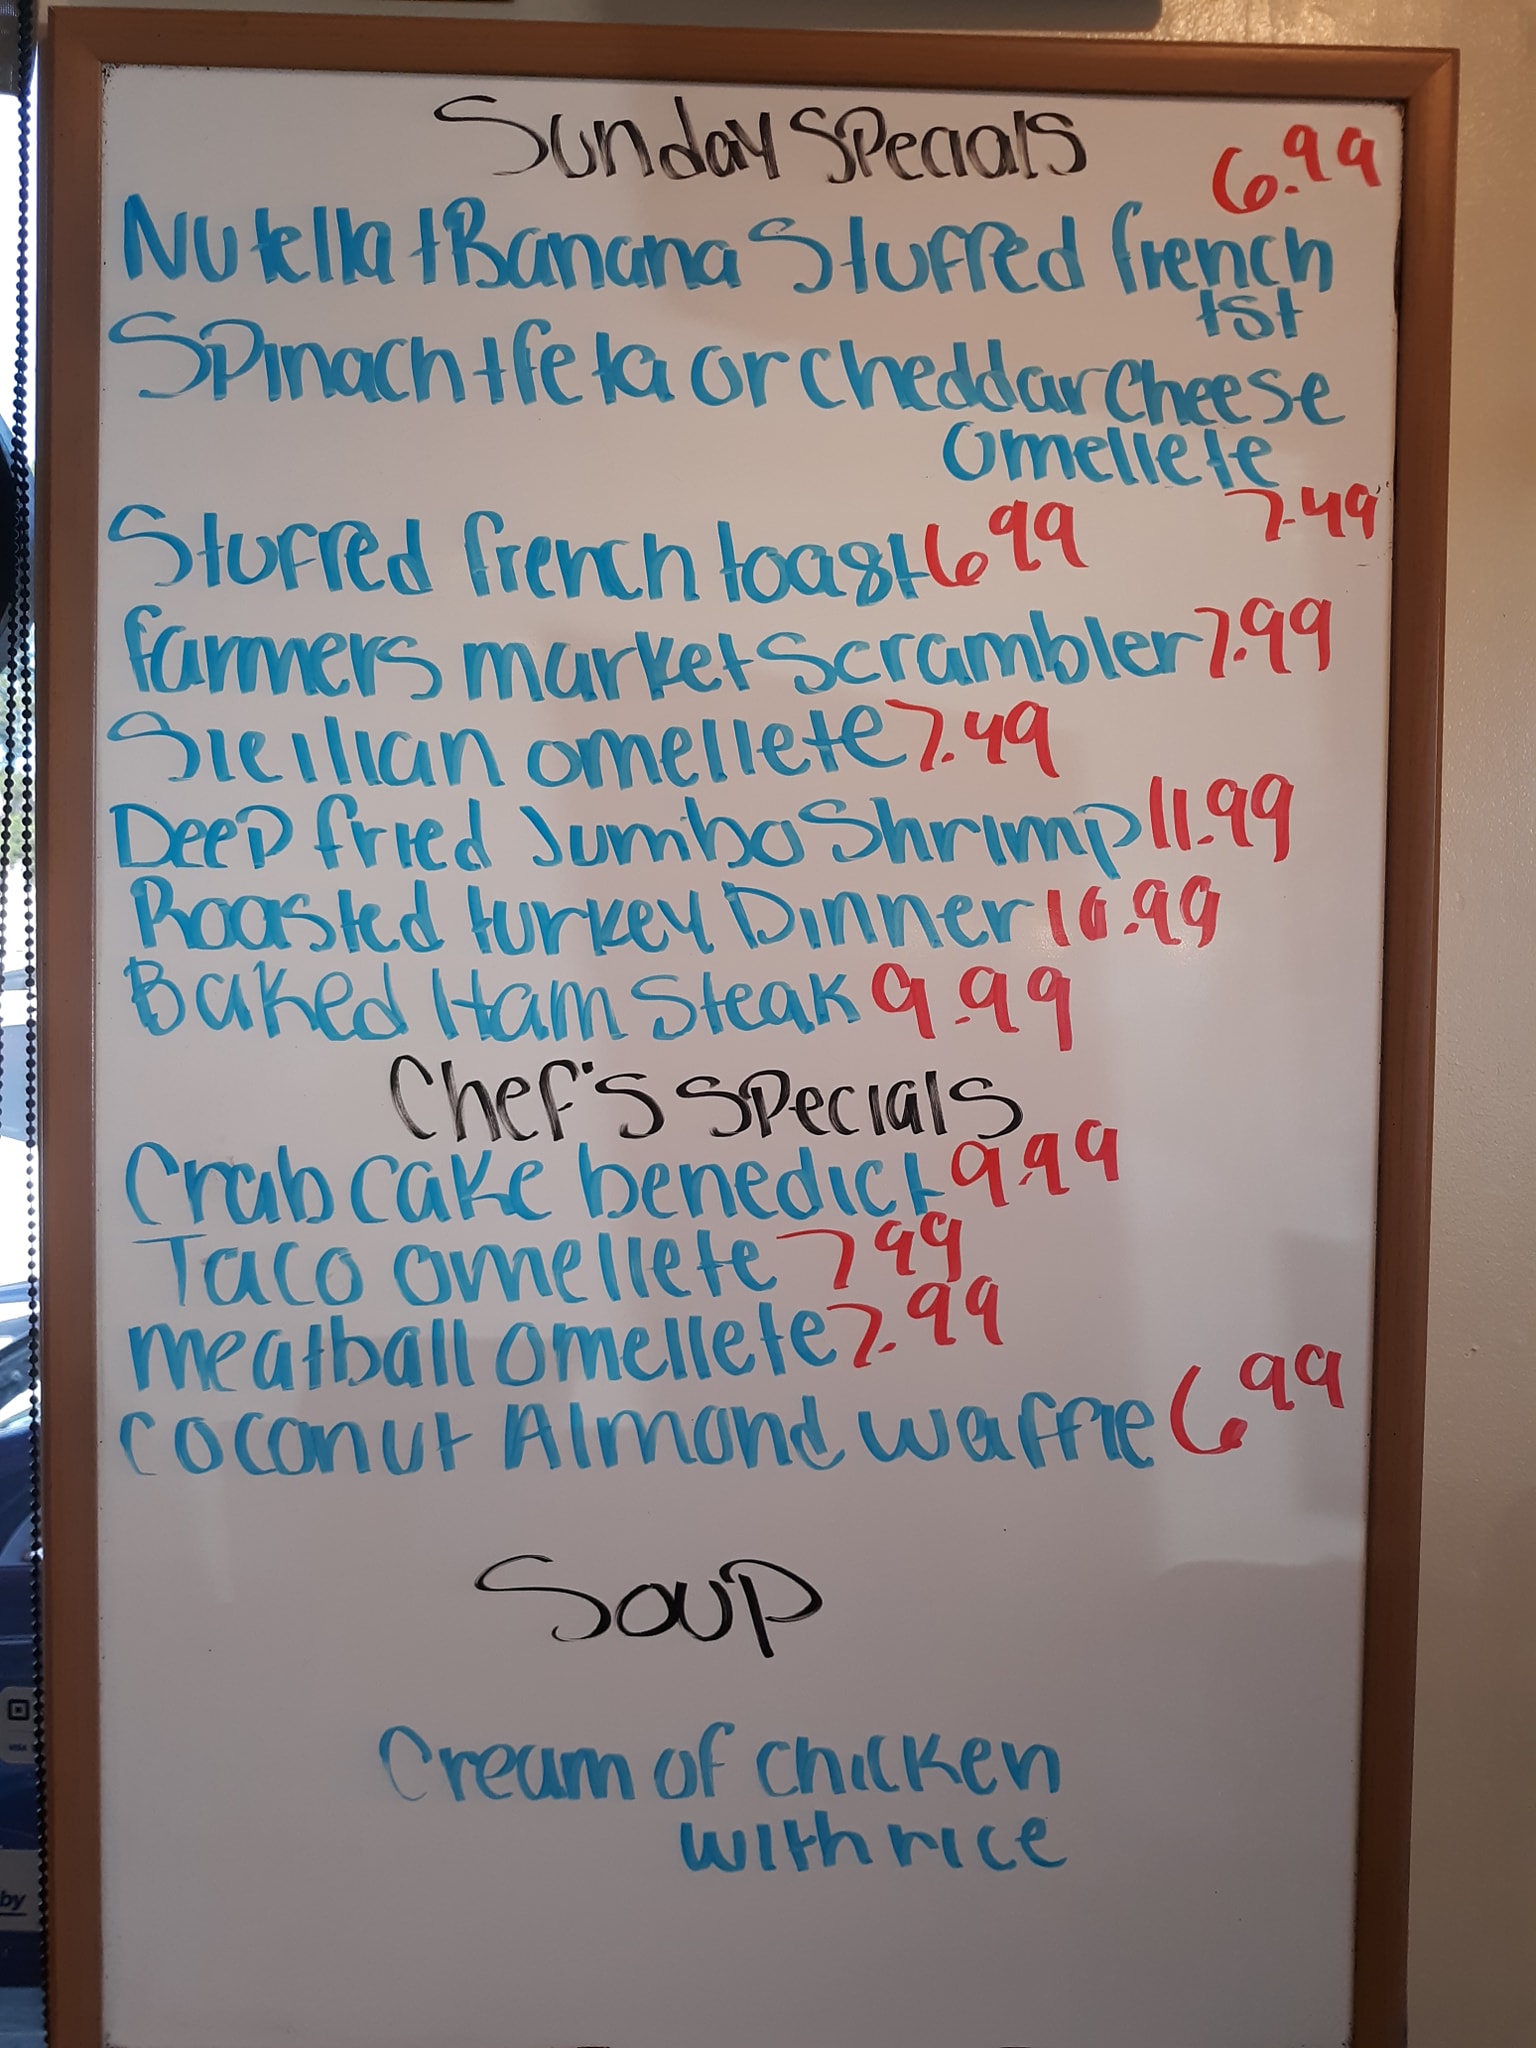 Sunday Specials
6.99
Nutella + Banana Stuffed french
tst
Spinach + feta or Cheddar Cheese
omellete
7.49
Stuffed french toast 6.99
farmers market Scrambler 7.99
Sicilian omellete 7.49
Deep fried Jumbo Shrimp 11.99
Roasted turkey Dinner 10.99
Baked Ham Steak 9.99
Chef's Specials
Crab cake benedict 9.99
Taco omellete 7 99
meatball omellete 7.99
coconut Almond waffle 6.99
Soup
Cream of chicken
with rice
VISA
by